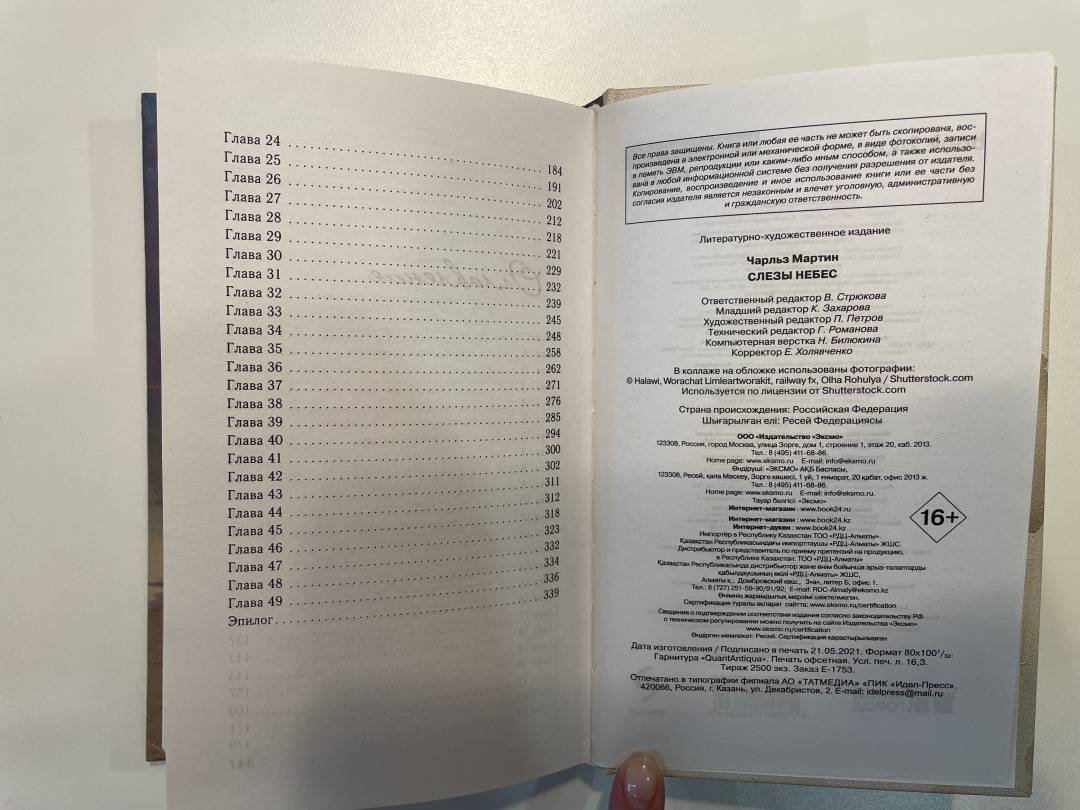 Глава 24 ........ 184
Глава 25 ........ 191
Глава 26 ........ 202
Глава 27 ........ 212
Глава 28 ........ 218
Глава 29 ........ 221
Глава 30 ........ 229
Глава 31 ........ 232
Глава 32 ........ 239
Глава 33 ........ 245
Глава 34 ........ 248
Глава 35 ........ 258
Глава 36 ........ 262
Глава 37 ........ 271
Глава 38 ........ 276
Глава 39 ........ 285
Глава 40 ........ 294
Глава 41 ........ 300
Глава 42 ........ 302
Глава 43 ........ 311
Глава 44 ........ 312
Глава 45 ........ 318
Глава 46 ........ 323
Глава 47 ........ 332
Глава 48 ........ 334
Глава 49 ........ 336
Эпилог ........ 339
Все права защищены. Книга или любая ее часть не может быть скопирована, вос-
произведена в электронной или механической форме, в виде фотокопии, записи
в память ЭВМ, репродукции или каким-либо иным способом, а также использо-
вана в любой информационной системе без получения разрешения от издателя.
Копирование, воспроизведение и иное использование книги или ее части без
согласия издателя является незаконным и влечет уголовную, административную
и гражданскую ответственность.
Литературно-художественное издание
Чарльз Мартин
СЛЕЗЫ НЕБЕС
Ответственный редактор В. Стрюкова
Младший редактор К. Захарова
Художественный редактор П. Петров
Технический редактор Г. Романова
Компьютерная верстка Н. Билюкина
Корректор Е. Холявченко
В коллаже на обложке использованы фотографии:
© Halawi, Worachat Limleartworakit, railway fx, Olha Rohulya / Shutterstock.com
Используется по лицензии от Shutterstock.com
Страна происхождения: Российская Федерация
Шығарылған елі: Ресей Федерациясы
ООО «Издательство «Эксмо»
123308, Россия, город Москва, улица Зорге, дом 1, строение 1, этаж 20, каб. 2013.
Тел.: 8 (495) 411-68-86.
Home page: www.eksmo.ru E-mail: info@eksmo.ru
Өндіруші: «ЭКСМО» АҚБ Баспасы,
123308, Ресей, қала Мәскеу, Зорге көшесі, 1 үй, 1 ғимарат, 20 қабат, офис 2013 ж.
Тел.: 8 (495) 411-68-86.
Home page: www.eksmo.ru E-mail: info@eksmo.ru.
Тауар белгісі: «Эксмо»
Интернет-магазин : www.book24.ru
Интернет-магазин : www.book24.kz
Интернет-дүкен : www.book24.kz
Импортёр в Республику Казахстан ТОО «РДЦ-Алматы».
Қазақстан Республикасындағы импорттаушы «РДЦ-Алматы» ЖШС.
Дистрибьютор и представитель по приему претензий на продукцию,
в Республике Казахстан: ТОО «РДЦ-Алматы»
Қазақстан Республикасында дистрибьютор және өнім бойынша арыз-талаптарды
қабылдаушының өкілі «РДЦ-Алматы» ЖШС,
Алматы қ., Домбровский көш., 3«а», литер Б, офис 1.
Тел.: 8 (727) 251-59-90/91/92; E-mail: RDC-Almaty@eksmo.kz
Өнімнің жарамдылық мерзімі шектелмеген.
Сертификация туралы ақпарат сайтта: www.eksmo.ru/certification
Сведения о подтверждении соответствия издания согласно законодательству РФ
о техническом регулировании можно получить на сайте Издательства «Эксмо»
www.eksmo.ru/certification
Өндірген мемлекет: Ресей. Сертификация қарастырылмаған
16+
Дата изготовления / Подписано в печать 21.05.2021. Формат 80x100 1/32.
Гарнитура «QuantAntiqua». Печать офсетная. Усл. печ. л. 16,3.
Тираж 2500 экз. Заказ Е-1753.
Отпечатано в типографии филиала АО «ТАТМЕДИА» «ПИК «Идел-Пресс».
420066, Россия, г. Казань, ул. Декабристов, 2. E-mail: idelpress@mail.ru